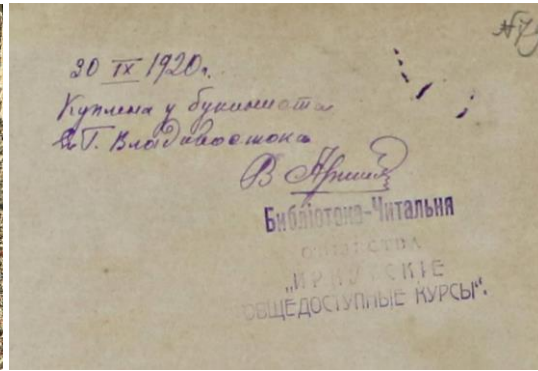 №
20 IX 1920 г.
Куплена у букиниста
в Г. Владивостока
В
Библіотека-Читальня
ОБЩЕСТВА
ОБЩЕДОСТУПНЫЕ КУРСЫ".